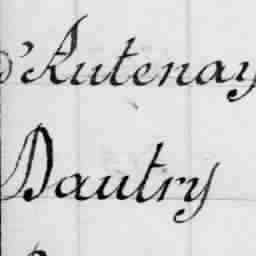 d'Autenay
Dautry